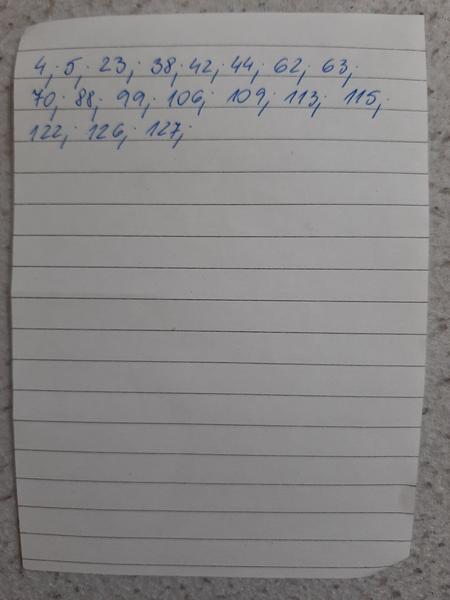 4; 5; 23; 38; 42; 44; 62; 63;
70; 88; 99; 106; 109; 113; 115;
122; 126; 127;